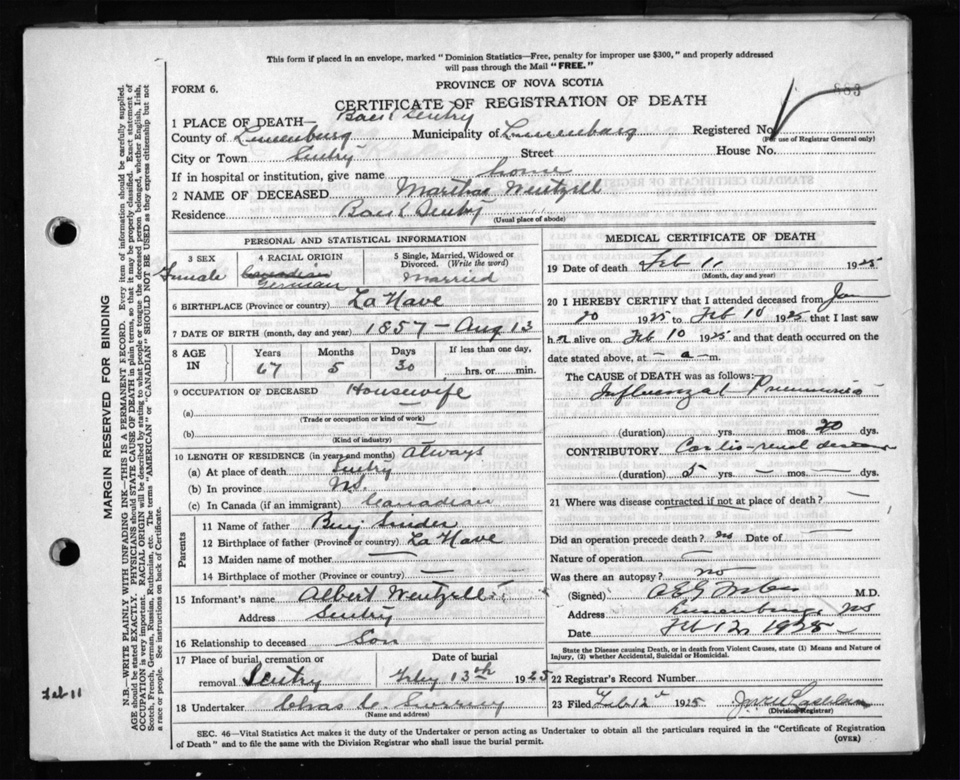 This form if placed in an envelope, marked "Dominion Statistics—Free, penalty for improper use $300," and properly addressed
will pass through the Mail "FREE."
FORM 6.
PROVINCE OF NOVA SCOTIA
CERTIFICATE OF REGISTRATION OF DEATH
1 PLACE OF DEATH—
County of Lunenburg Municipality of Lunenburg Registered No.
(For use of Registrar General only)
City or Town Street House No.
If in hospital or institution, give name home
2 NAME OF DECEASED Martha Wentzell
Residence
(Usual place of abode)
PERSONAL AND STATISTICAL INFORMATION
3 SEX 4 RACIAL ORIGIN 5 Single, Married, Widowed or Divorced. (Write the word)
Female Canadian German Married
6 BIRTHPLACE (Province or country) La Have
7 DATE OF BIRTH (month, day and year) 1857 – Aug 13
8 AGE IN Years Months Days If less than one day,
67 5 30 hrs. or min.
9 OCCUPATION OF DECEASED Housewife
(a)
(Trade or occupation or kind of work)
(b)
(Kind of industry)
10 LENGTH OF RESIDENCE (in years and months) Always
(a) At place of death
(b) In province NS.
(c) In Canada (if an immigrant) Canadian
Parents
11 Name of father Benj
12 Birthplace of father (Province or country) La Have
13 Maiden name of mother —
14 Birthplace of mother (Province or country) —
15 Informant's name Albert Wentzell
Address
16 Relationship to deceased Son
17 Place of burial, cremation or removal Date of burial
Feby 13th 1925
18 Undertaker Chas
(Name and address)
MEDICAL CERTIFICATE OF DEATH
19 Date of death Feb 11 1925
(Month, day and year)
20 I HEREBY CERTIFY that I attended deceased from Jan
20 1925 to Feb 10 1925 that I last saw
her alive on Feb 10 1925 and that death occurred on the
date stated above, at – a – m.
The CAUSE OF DEATH was as follows:
Influenzal Pneumonia
(duration) yrs. mos. 20 dys.
CONTRIBUTORY
(duration) 5 yrs. — mos. — dys.
21 Where was disease contracted if not at place of death? —
Did an operation precede death? no Date of —
Nature of operation —
Was there an autopsy? no
(Signed) M.D.
Address Lunenburg, NS
Date Feb 12, 1925
State the Disease causing Death, or in death from Violent Causes, state (1) Means and Nature of
Injury, (2) whether Accidental, Suicidal or Homicidal.
22 Registrar's Record Number
23 Filed Feb 12 1925
(Division Registrar)
SEC. 46—Vital Statistics Act makes it the duty of the Undertaker or person acting as Undertaker to obtain all the particulars required in the "Certificate of Registration
of Death" and to file the same with the Division Registrar who shall issue the burial permit. (OVER)
MARGIN RESERVED FOR BINDING
N.B.—WRITE PLAINLY WITH UNFADING INK—THIS IS A PERMANENT RECORD. Every item of information should be carefully supplied.
AGE should be stated EXACTLY. PHYSICIANS should STATE CAUSE OF DEATH in plain terms, so that it may be properly classified. Exact statement of
OCCUPATION is very important. RACIAL ORIGIN will be described by stating to what people or tongue the deceased person belonged, whether English, Irish,
Scotch, French, German, Russian, Ruthenian, etc. The terms "AMERICAN" or "CANADIAN" SHOULD NOT BE USED as they express citizenship but not
a race or people. See instructions on back of Certificate.
Feb 11